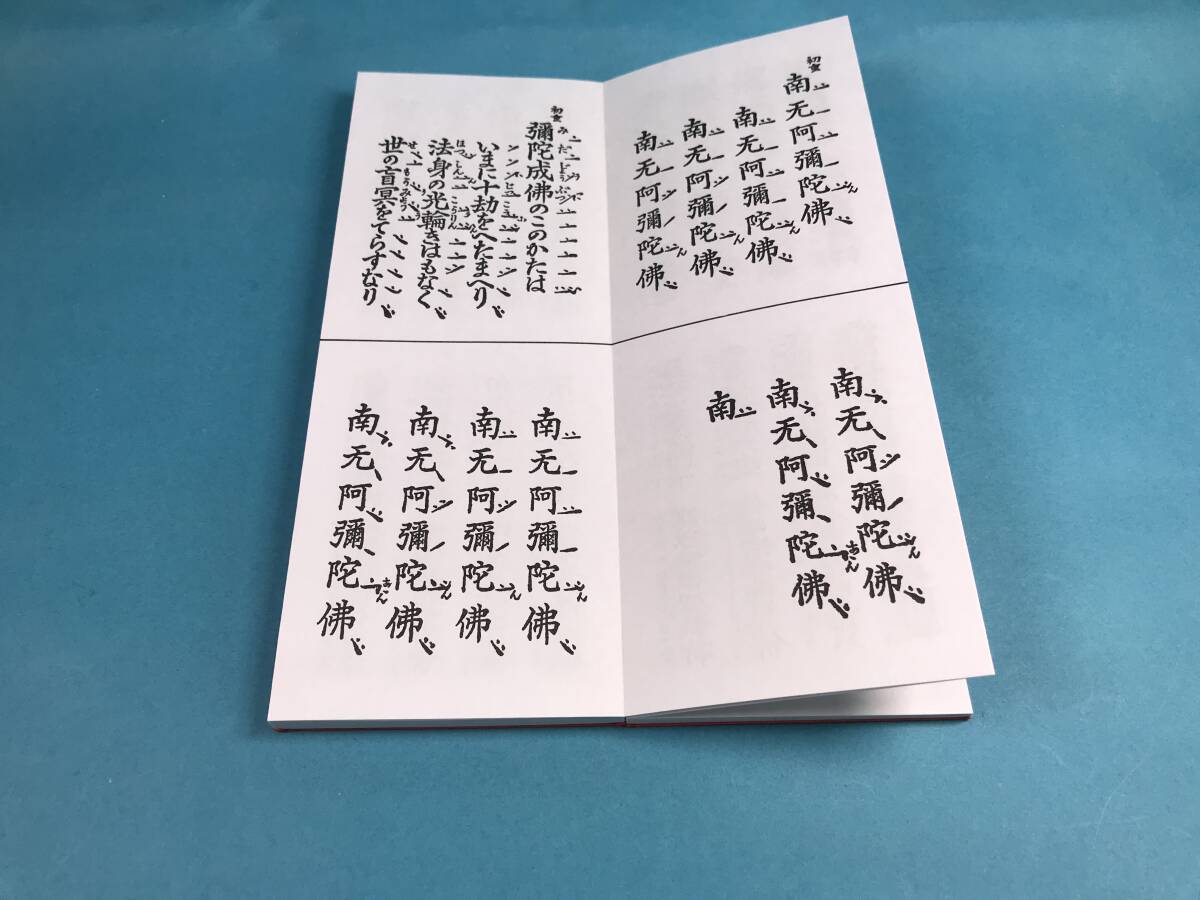 初重
南无阿彌陀佛
南无阿彌陀佛
南无阿彌陀佛
南无阿彌陀佛
南无阿彌陀佛
南无阿彌陀佛
南
初重
彌陀成佛のこのかたは
いまに十劫をへたまへり
法身の光輪きはもなく
世の盲冥をてらすなり
南无阿彌陀佛
南无阿彌陀佛
南无阿彌陀佛
南无阿彌陀佛